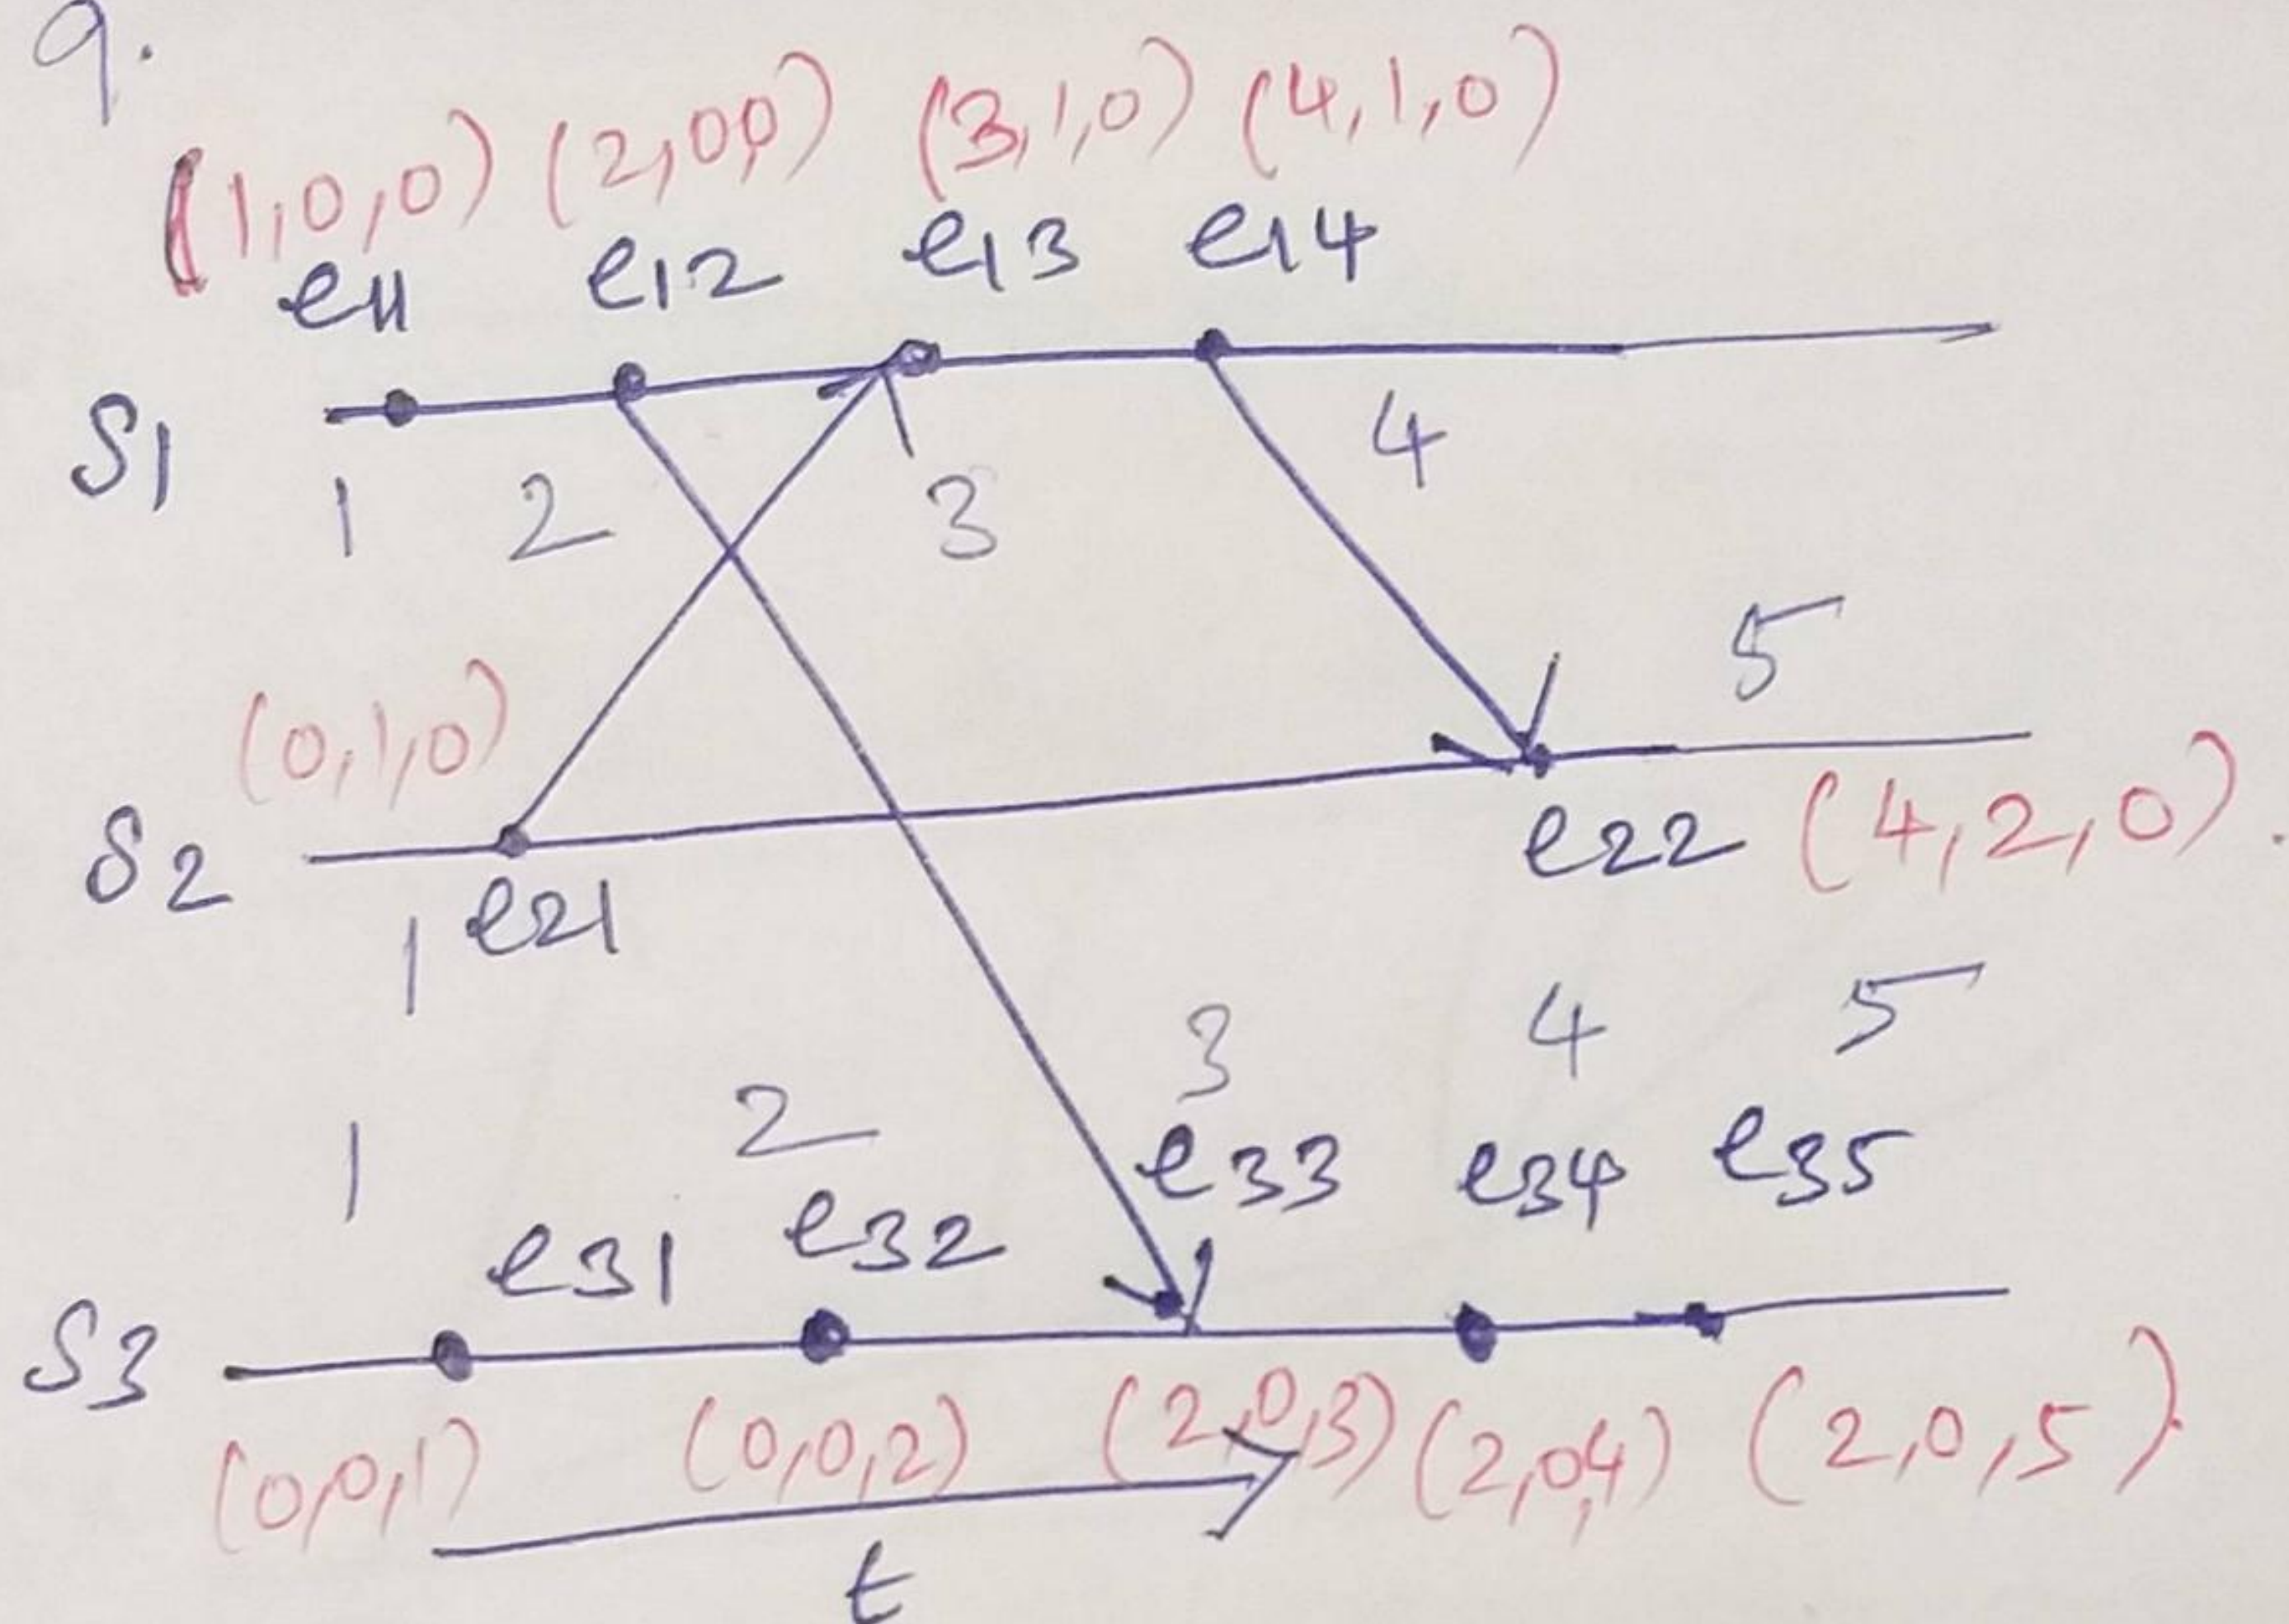 9.
(1,0,0) (2,0,0) (3,1,0) (4,1,0)
e11 e12 e13 e14
S1
1 2 3 4
5
(0,1,0)
S2
e21
1
e22 (4,2,0).
1 2 3 4 5
e31 e32 e33 e34 e35
S3
(0,0,1) (0,0,2) (2,0,3) (2,0,4) (2,0,5)
t